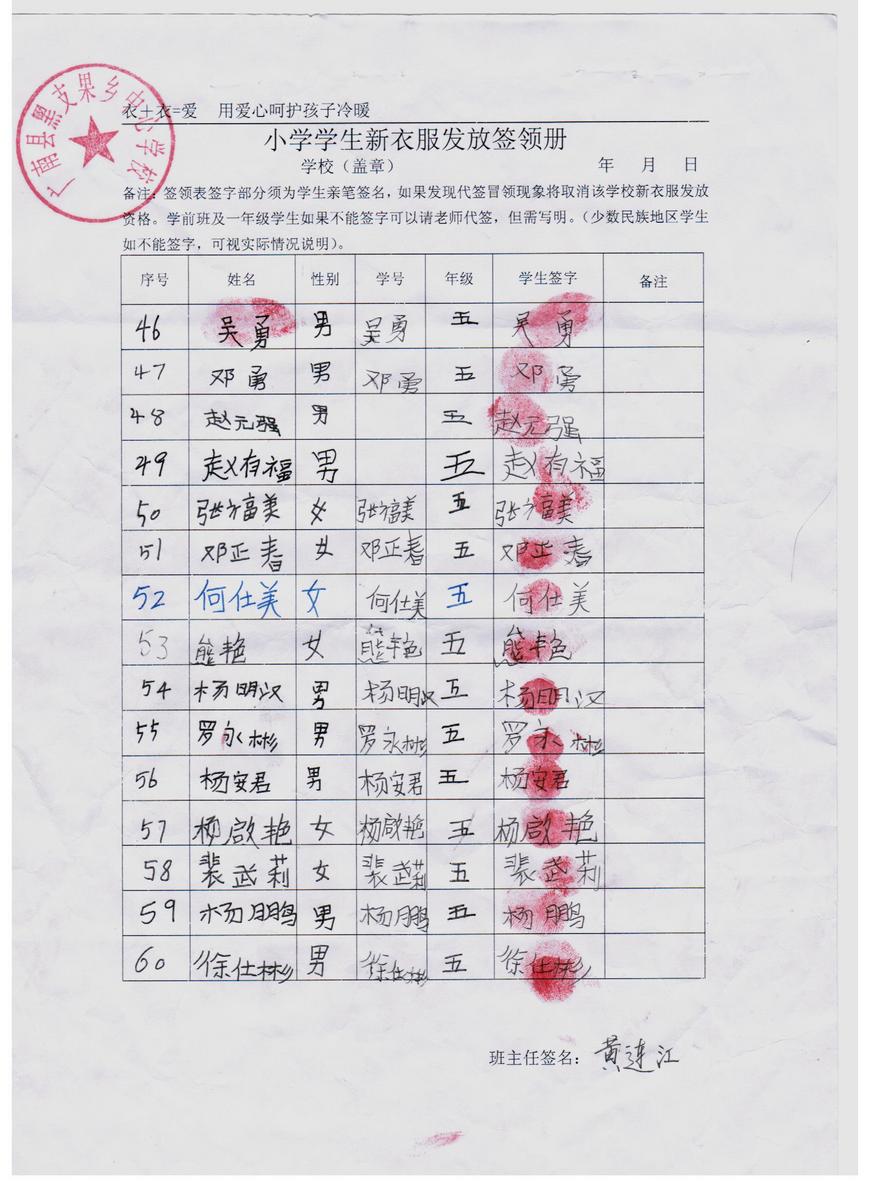 广南县黑支果乡中心学校
衣+衣=爱 用爱心呵护孩子冷暖
小学学生新衣服发放签领册
学校（盖章） 年 月 日
备注：签领表签字部分须为学生亲笔签名，如果发现代签冒领现象将取消该学校新衣服发放
资格。学前班及一年级学生如果不能签字可以请老师代签，但需写明。（少数民族地区学生
如不能签字，可视实际情况说明）。
序号 姓名 性别 学号 年级 学生签字 备注
46 吴勇 男 吴勇 五 吴勇
47 邓勇 男 邓勇 五 邓勇
48 赵元强 男 五 赵元强
49 赵有福 男 五 赵有福
50 张福美 女 张福美 五 张福美
51 邓正春 女 邓正春 五 邓正春
52 何仕美 女 何仕美 五 何仕美
53 熊艳 女 熊艳 五 熊艳
54 杨明汉 男 杨明汉 五 杨明汉
55 罗永彬 男 罗永彬 五 罗永彬
56 杨安君 男 杨安君 五 杨安君
57 杨啟艳 女 杨啟艳 五 杨啟艳
58 裴武莉 女 裴武莉 五 裴武莉
59 杨鹏 男 杨鹏 五 杨鹏
60 徐仕彬 男 徐仕彬 五 徐仕彬
班主任签名：黄连江